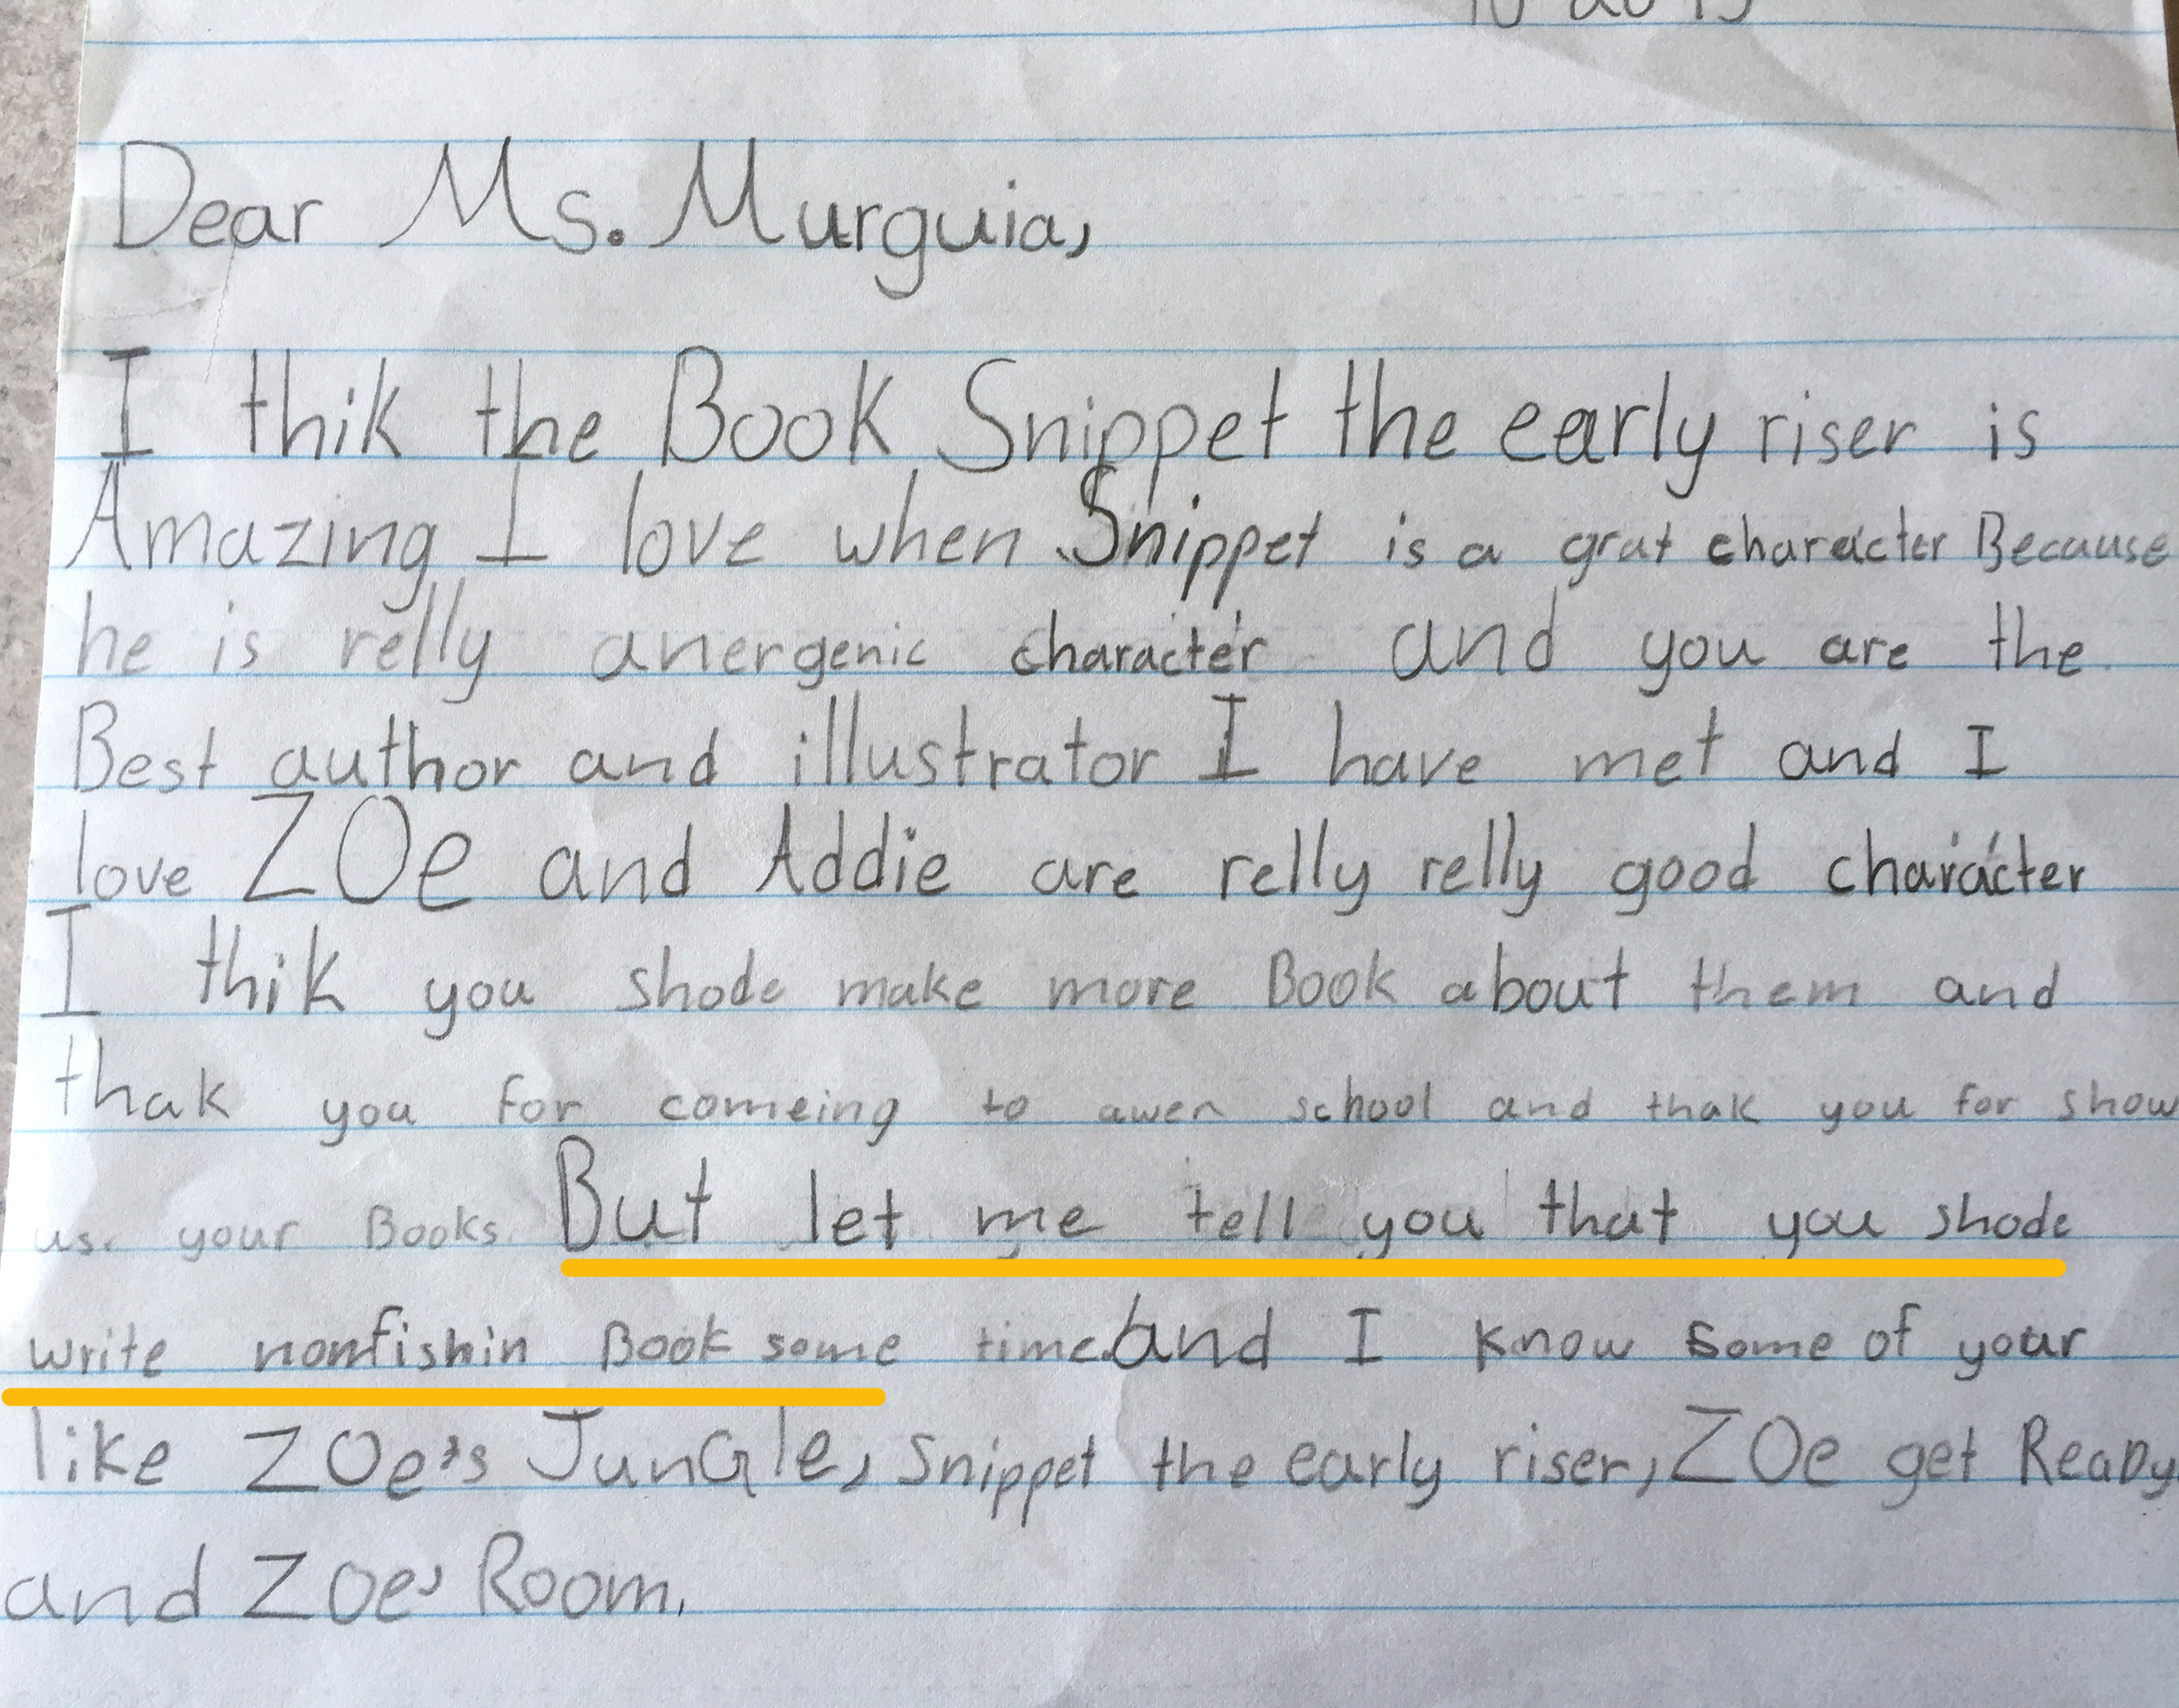 Dear Ms. Murguia,
I thik the Book Snippet the early riser is
Amazing I love when Snippet is a grat character Because
he is relly anergenic character and you are the
Best author and illustrator I have met and I
love ZOe and Addie are relly relly good character
I thik you shode make more Book about them and
thak you for comeing to awer school and thak you for show
us. your Books. But let me tell you that you shode
write nonfishin Book some time. and I know some of your
like ZOe's JunGle, snippet the early riser, ZOe get ReaDy
and ZOe's Room.